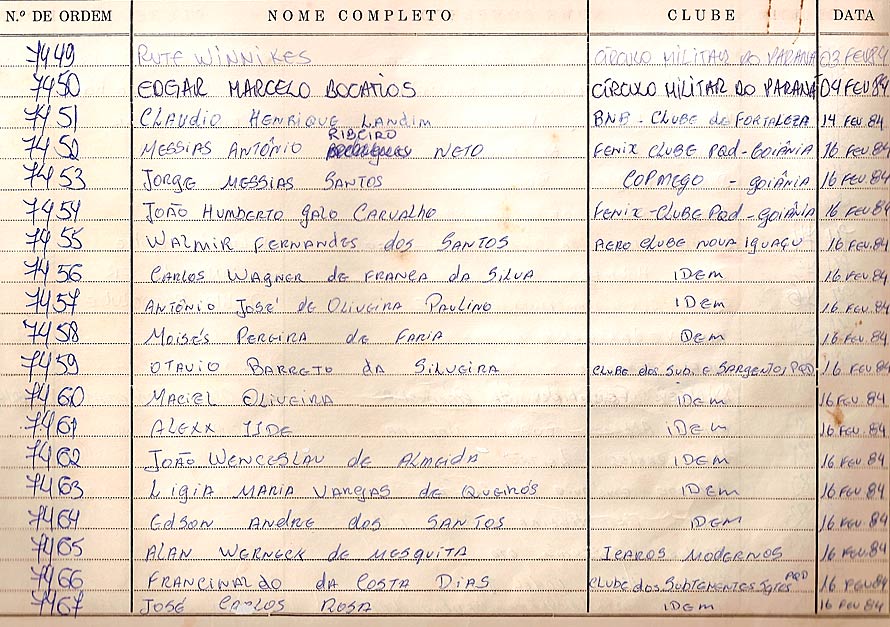 N.º DE ORDEM NOME COMPLETO CLUBE DATA
7449 RUTE WINNIKES CÍRCULO MILITAR DO PARANÁ 03 FEV 84
7450 EDGAR MARCELO BOCATIOS CÍRCULO MILITAR DO PARANÁ 04 FEV 84
7451 CLAUDIO HENRIQUE LANDIM BNB - CLUBE de FORTALEZA 14 FEV 84
RIBEIRO
7452 MESSIAS ANTÔNIO NETO FENIX CLUBE PQD - GOIÂNIA 16 FEV 84
7453 JORGE MESSIAS SANTOS COPMEGO - GOIÂNIA 16 FEV 84
7454 JOÃO HUMBERTO GALO CARVALHO FENIX - CLUBE PQD - GOIÂNIA 16 FEV 84
7455 WALMIR FERNANDES dos SANTOS AERO CLUBE NOVA IGUAÇU 16 FEV. 84
7456 CARLOS WAGNER de FRANÇA da SILVA IDEM 16 FEV 84
7457 ANTÔNIO JOSÉ de OLIVEIRA PAULINO IDEM 16 FEV. 84
7458 MOISÉS PEREIRA de FARIA IDEM 16 FEV. 84
7459 OTAVIO BARRETO da SILVEIRA CLUBE dos Sub. e SARGENTOS PQD 16 FEV. 84
7460 MACIEL OLIVEIRA IDEM 16 FEV. 84
7461 ALEXX IIDE IDEM 16 FEV. 84
7462 JOÃO WENCESLAU de ALMEIDA IDEM 16 FEV. 84
7463 LIGIA MARIA VARGAS de QUEIRÓS IDEM 16 FEV. 84
7464 EDSON ANDRE dos SANTOS IDEM 16 FEV. 84
7465 ALAN WERNECK de MESQUITA ICAROS MODERNOS 16 FEV. 84
7466 FRANCINALDO DA COSTA DIAS CLUBE dos SUBTENENTES SGTOS PQD 16 FEV 84
7467 JOSÉ CARLOS ROSA IDEM 16 FEV 84